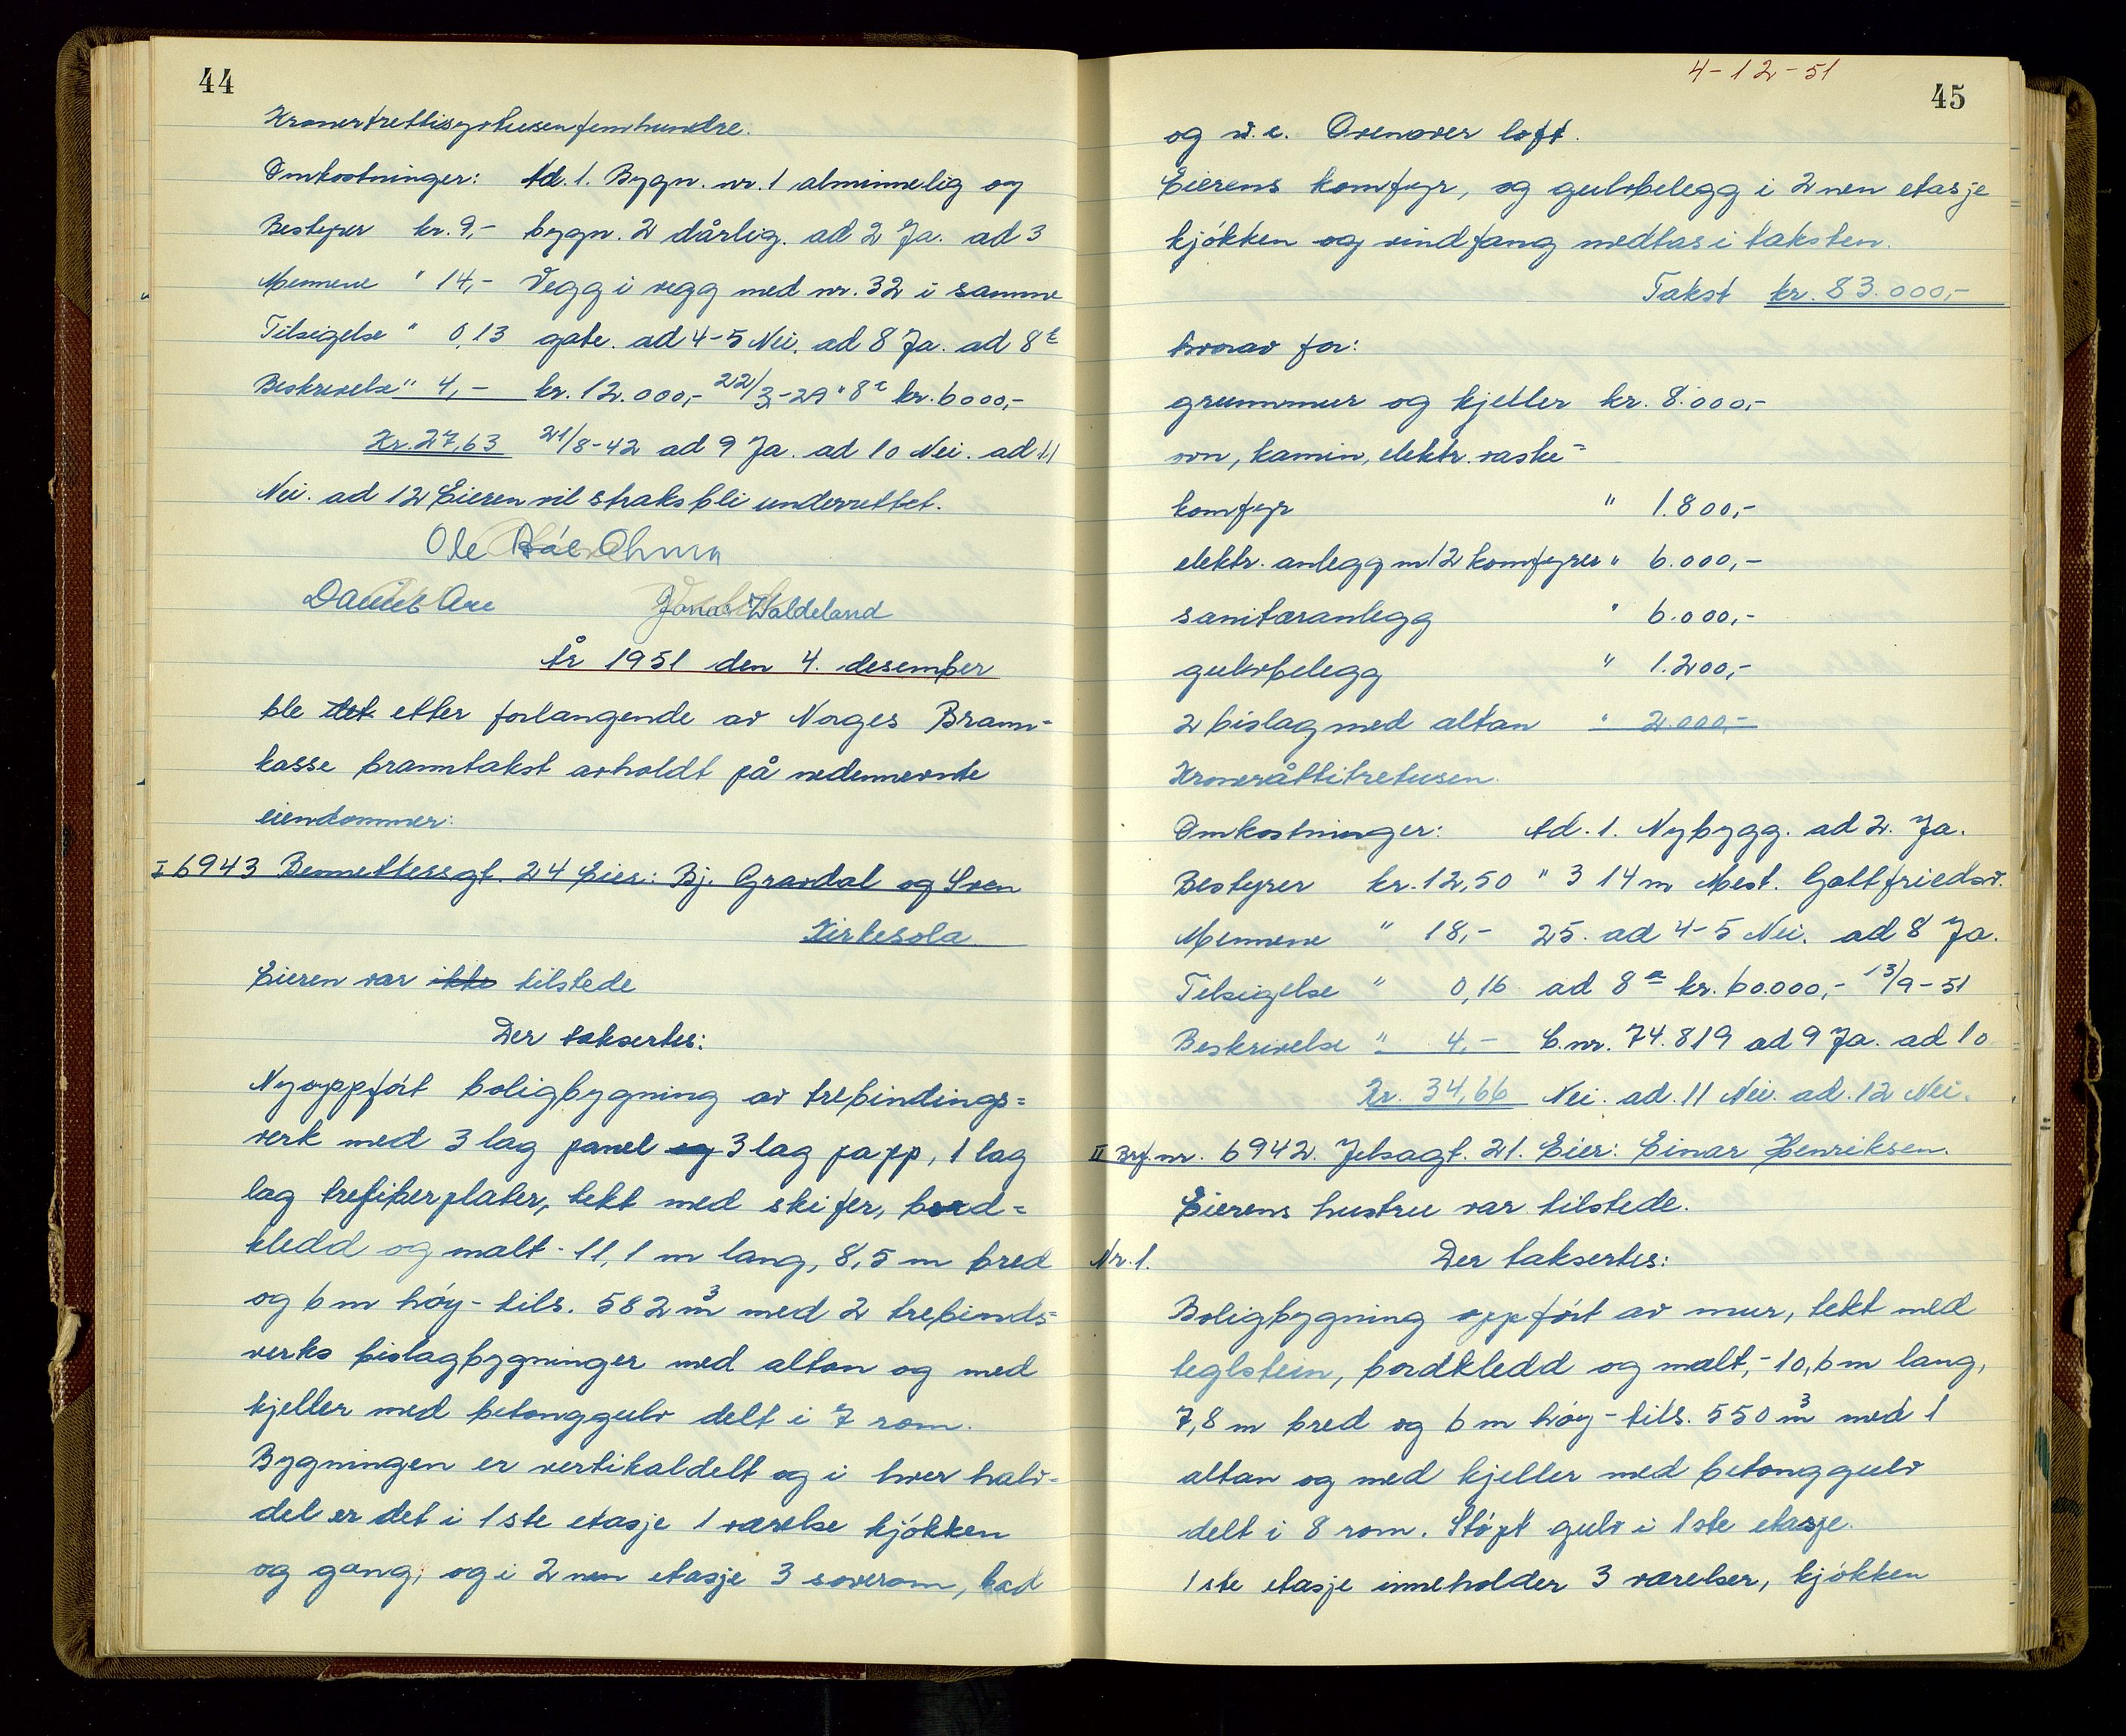 44
Kronertrettisyvtusenfemhundre.
Omkostninger: Ad. 1. Bygn. nr. 1 alminnelig og
Bestyrer kr. 9,- bygn. 2 dårlig. ad 2 Ja. ad 3
Mennene " 14,- Vegg i vegg med nr. 32 i samme
Tilsigelse " 0,13 gate. ad 4-5 Nei. ad 8 Ja. ad 8
Beskrivelse " 4,- kr. 12.000,- 22/3-29 " 8 kr. 6000,-
Kr. 27,63 21/8-42 ad 9 Ja. ad 10 Nei. ad 11
Nei. ad 12 Eieren vil straks bli underrettet.
Ole
Jonas Waldeland
År 1951 den 4. desember
ble det etter forlangende av Norges Brann-
kasse branntakst avholdt på nedennevnte
eiendommer:
I 6943 Bennettersgt. 24 Eier: Bj. Gravdal og Sven
Kirkesola
Eieren var ikke tilstede
Der taksertes:
Nyoppført boligbygning av trebindings=
verk med 3 lag panel og 3 lag papp, 1 lag
lag trefiberplater, tekt med skifer, bord=
kledd og malt - 11,1 m lang, 8,5 m bred
og 6 m høy - tils. 582 m³ med 2 trebinds=
verks bislagbygninger med altan og med
kjeller med betonggulv delt i 7 rom.
Bygningen er vertikaldelt og i hver halv-
del er det i 1ste etasje 1 værelse kjøkken
og gang, og i 2nen etasje 3 soverom, bad
4-12-51
45
og w.c. Ovenover loft.
Eierens komfyr, og gulvbelegg i 2nen etasje
kjøkken og vindfang medtas i taksten.
Takst kr. 83.000,-
hvorav for:
grunnmur og kjeller kr. 8.000,-
ovn, kamin, elektr. vaske=
komfyr " 1.800,-
elektr. anlegg m/2 komfyrer " 6.000,-
sanitæranlegg " 6.000,-
gulvbelegg " 1.200,-
2 bislag med altan " 2.000,-
Kroneråttitretusen.
Omkostninger: Ad. 1. Nybygg. ad 2. Ja.
Bestyrer kr. 12,50 " 3 14 m Mest. Gottfriedsv.
Mennene " 18,- 25. ad 4-5 Nei. ad 8 Ja.
Tilsigelse " 0,16 ad 8 a kr. 60.000,- 13/9-51
Beskrivelse " 4,- B.nr. 74.819 ad 9 Ja. ad 10
Kr. 34,66 Nei. ad. 11 Nei. ad. 12 Nei.
II Brf. nr. 6942. Jelsagt. 21. Eier: Einar Henriksen.
Eierens hustru var tilstede.
Nr. 1. Der taksertes:
Boligbygning oppført av mur, tekt med
teglstein, bordkledd og malt, - 10,6 m lang,
7,8 m bred og 6 m høy - tils. 550 m³ med 1
altan og med kjeller med betonggulv
delt i 8 rom. Støpt gulv i 1ste etasje.
1ste etasje inneholder 3 værelser, kjøkken